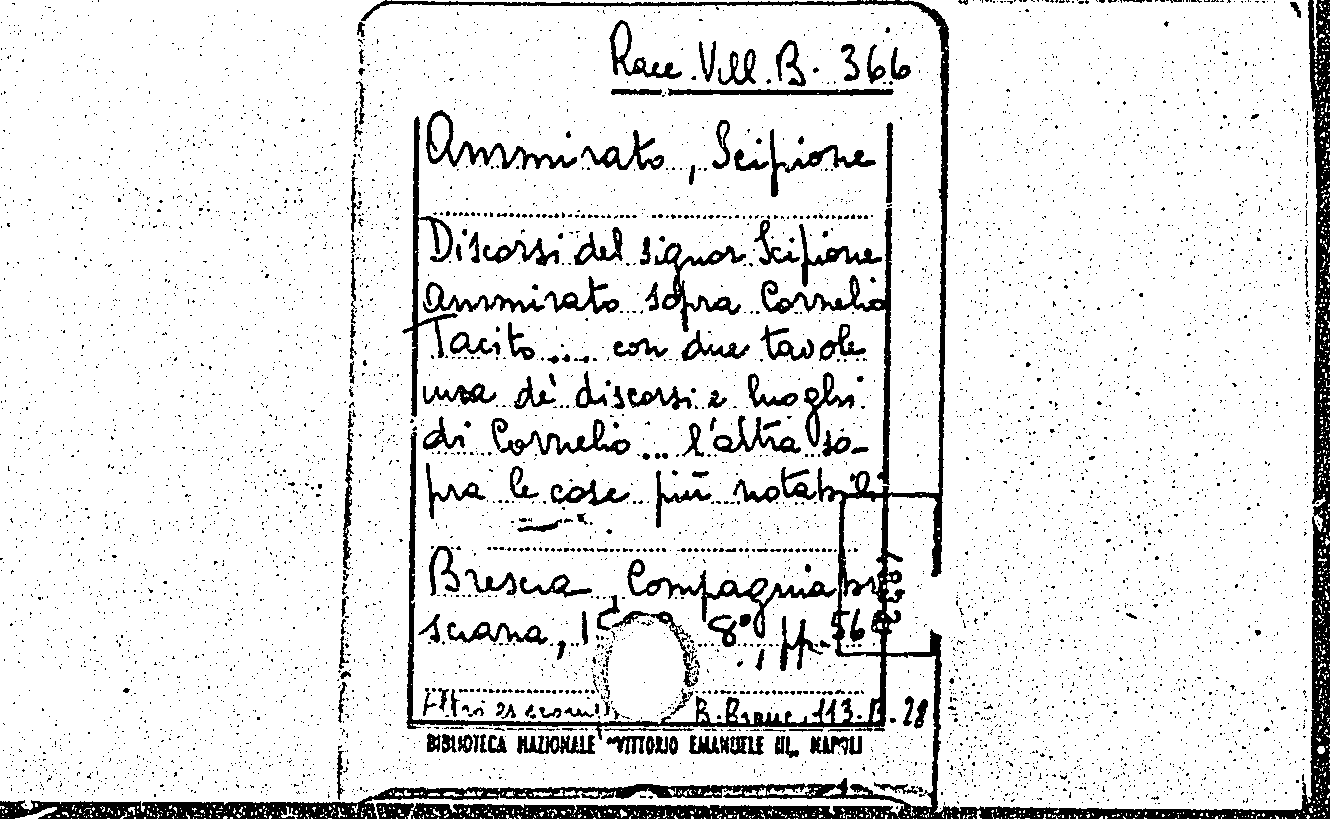 Racc. Vill. B. 366
Ammirato, Scipione
Discorsi del signor Scipione
Ammirato sopra Cornelio
Tacito... con due tavole
una de' discorsi e luoghi
di Cornelio... l'altra so-
pra le cose più notabili
Brescia, Compagnia bre
sciana, 8º, pp. 56
Altri esemplari B. Branc. 113. B. 28
BIBLIOTECA NAZIONALE "VITTORIO EMANUELE III" NAPOLI